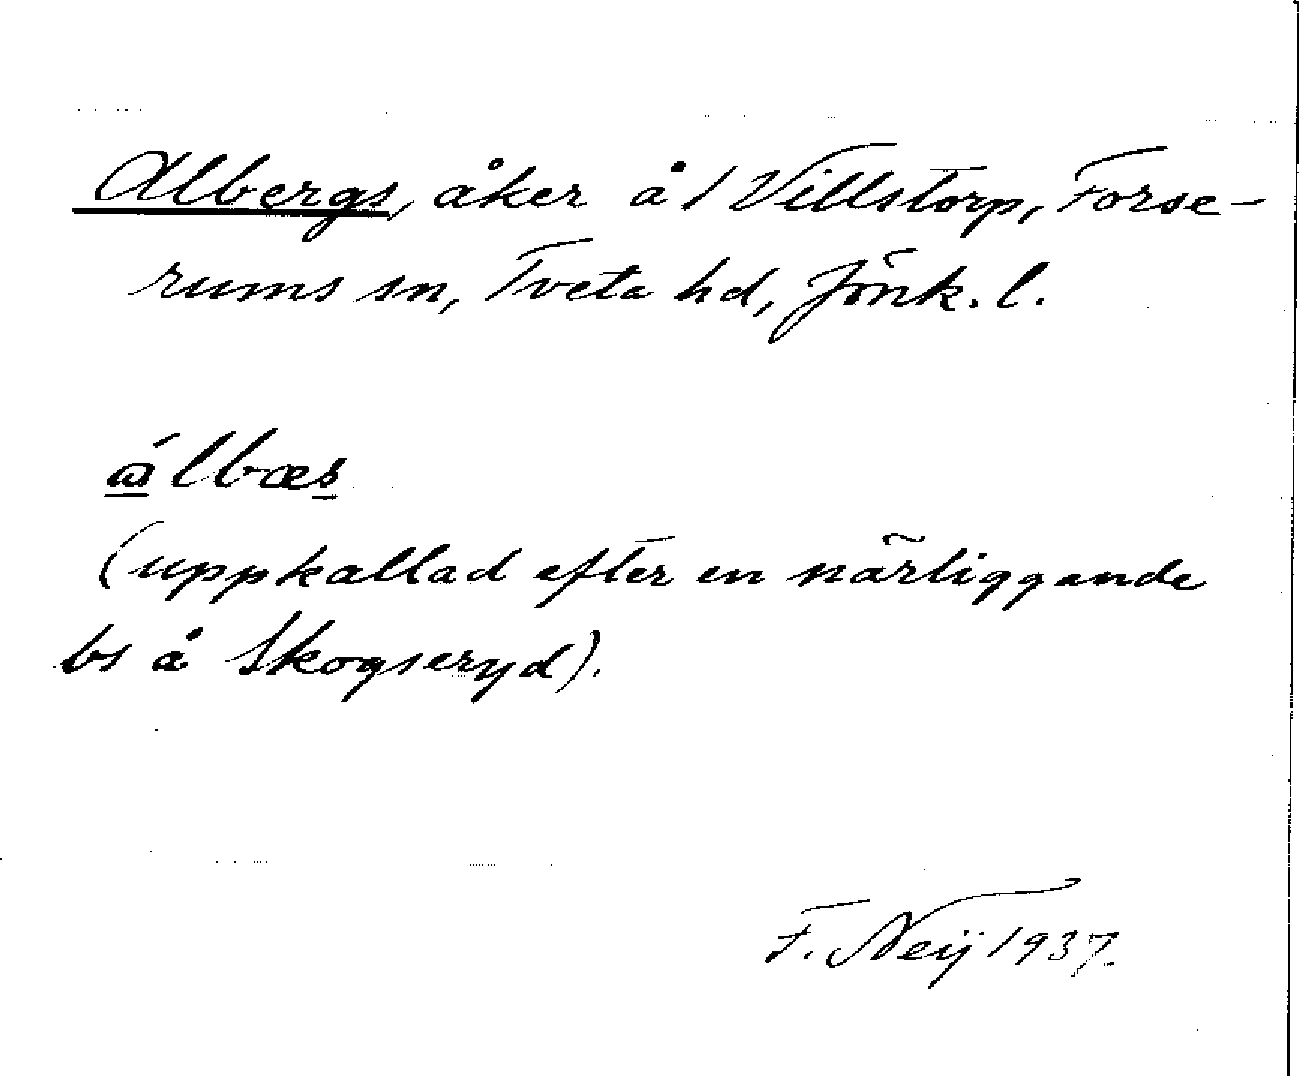 Albergs, åker å 1 Villstorp, Forse-
rums sn, Tveta hd, Jönk. l.
álbæs
(uppkallad efter en närliggande
bs å Skogseryd).
F. Neij 1937.